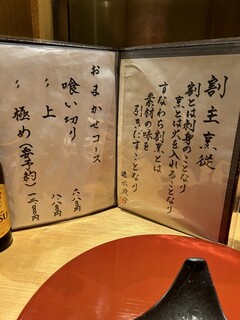 割主烹従
割とは刺身のことなり
烹とは火を入れることなり
すなわち割烹とは
素材の味を
引きだすことなり
おまかせコース
喰い切り 六、八〇〇円
〃 上 八、八〇〇円
〃 極め(要予約) 一二、〇〇〇円